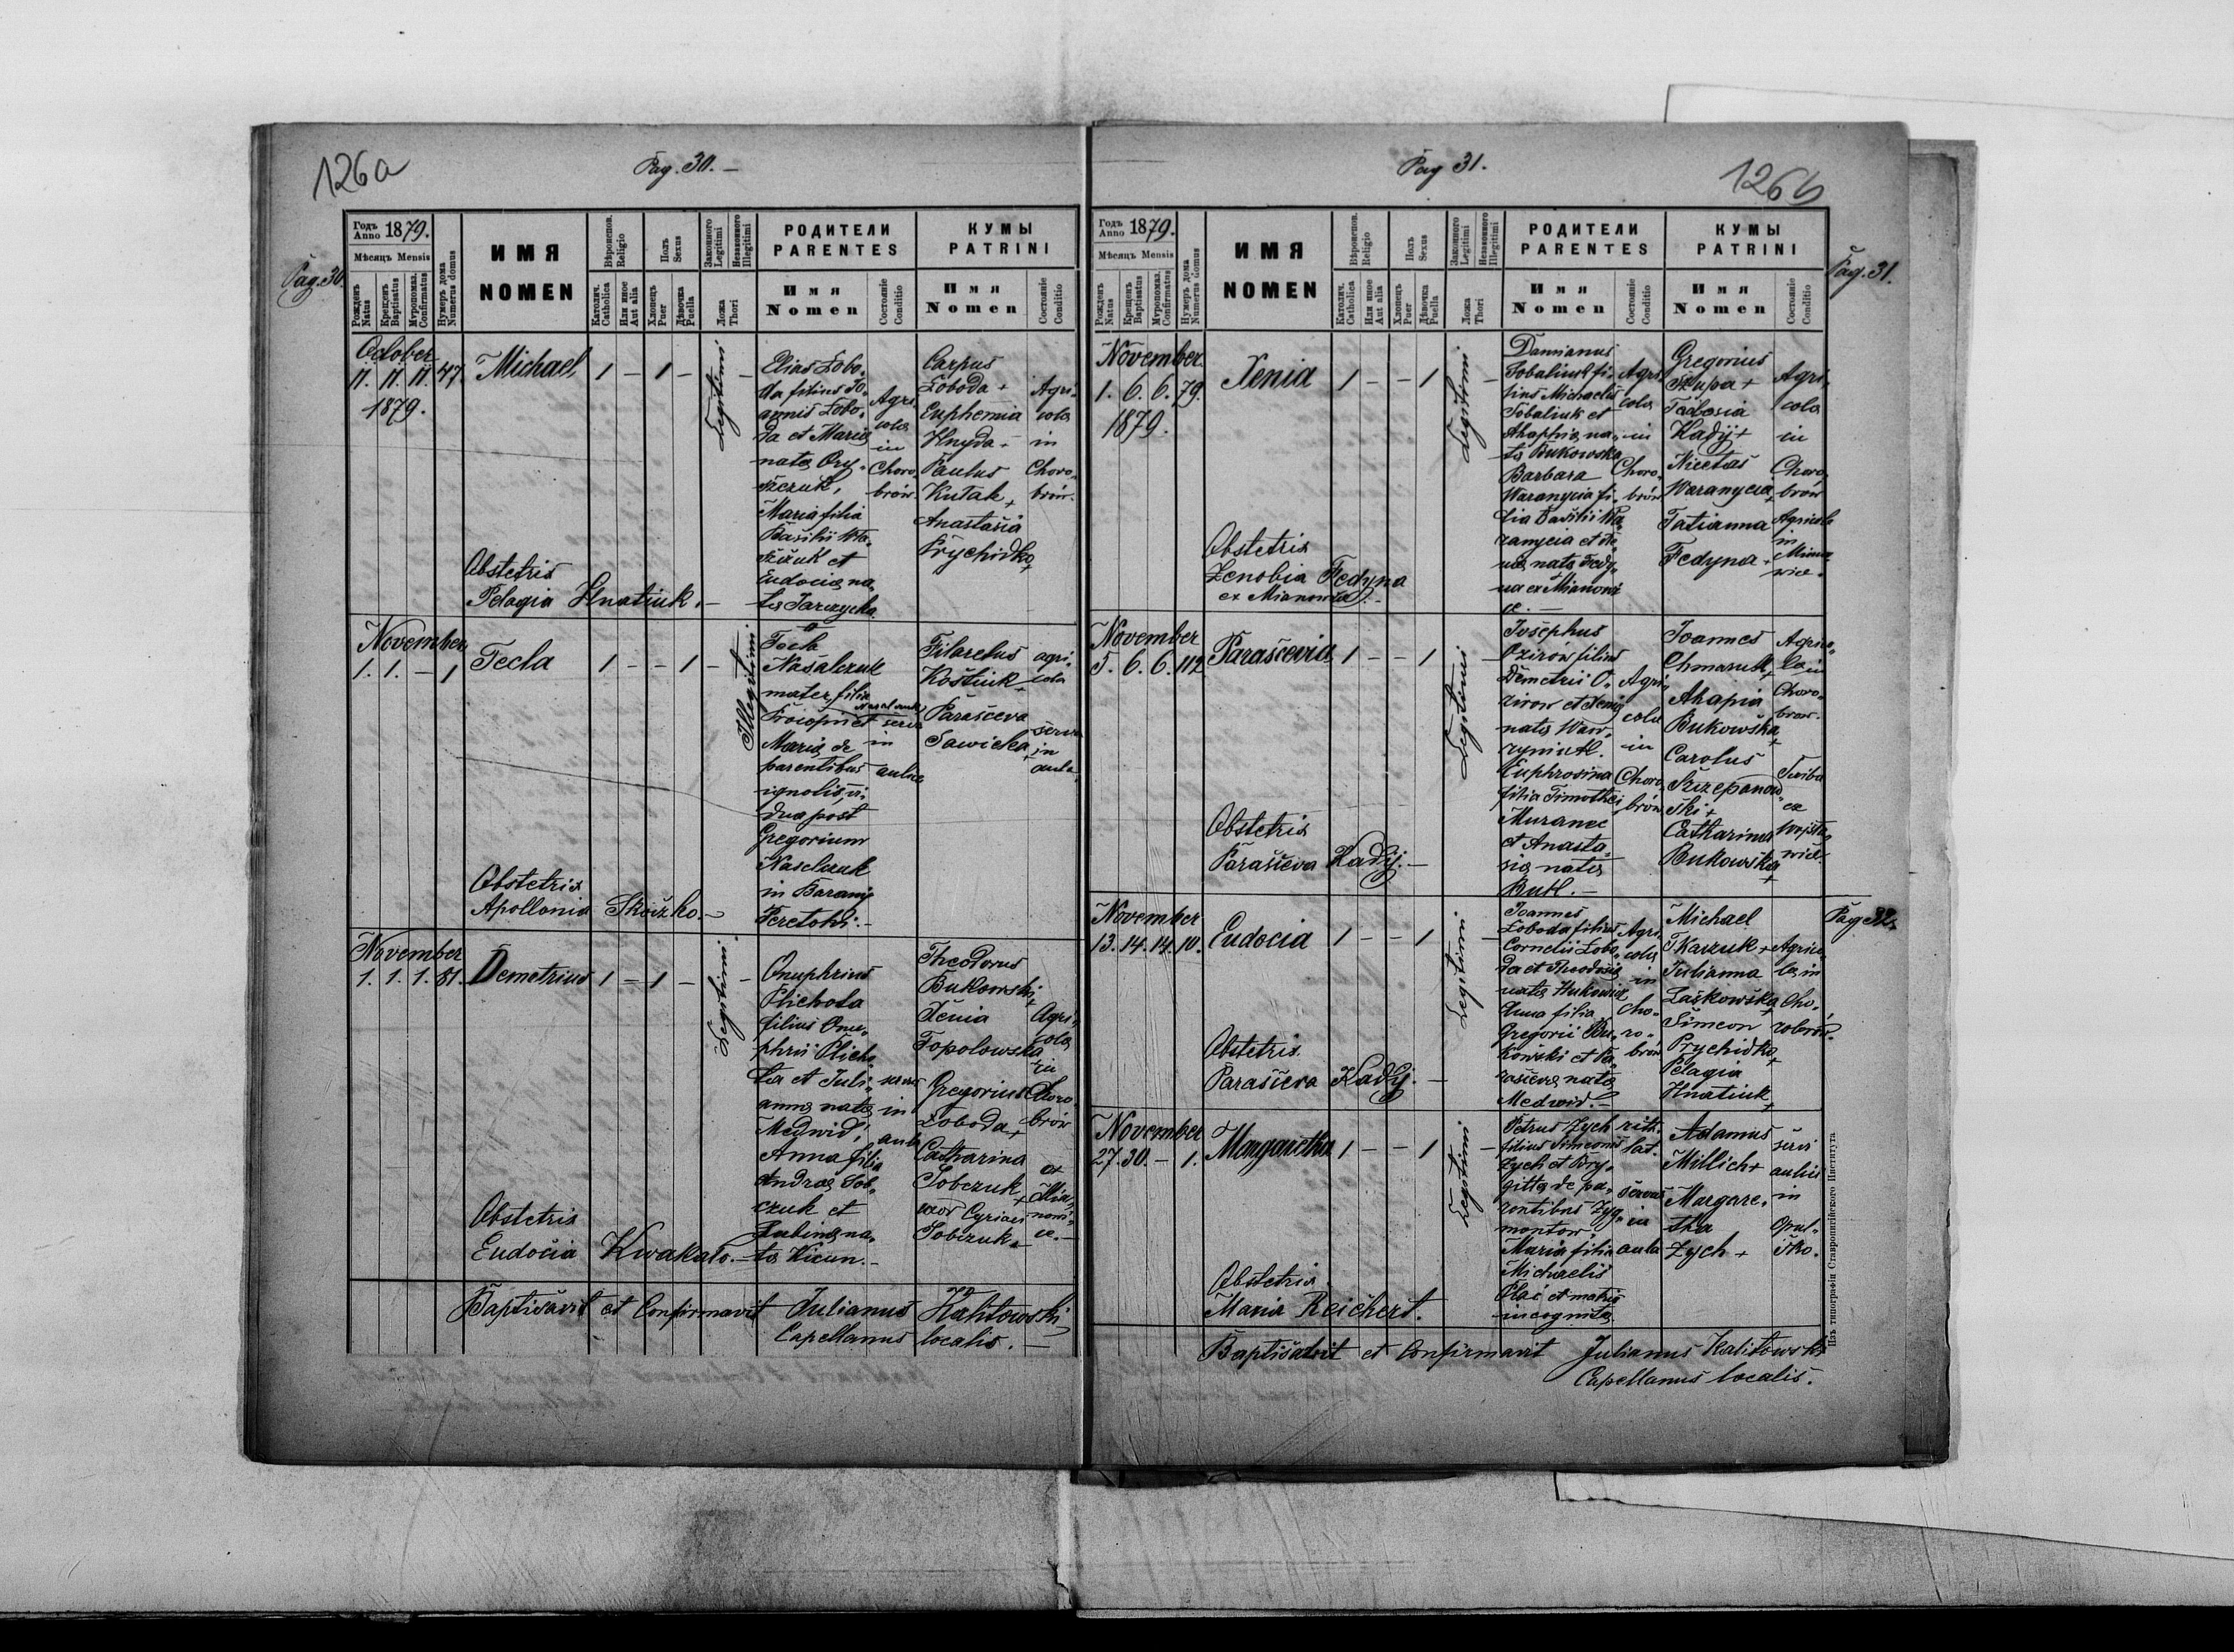 126a
Pag. 30. —
Pag. 30.
Годъ Anno 1879.
Мѣсяцъ Mensis
Рожденъ Natus
Крещенъ Baptisatus
Мvропомаз. Confirmatus
Нумеръ дома Numerus domus
ИМЯ
NOMEN
Вѣроисповѣд. Religio
Католич. Catholica
Или иное Aut alia
Полъ Sexus
Хлопецъ Puer
Дѣвочка Puella
Законного Legitimi
Незаконного Illegitimi
Ложа Thori
РОДИТЕЛИ
PARENTES
Имя
Nomen
Состояніе Conditio
КУМЫ
PATRINI
Имя
Nomen
Состояніе Conditio
October
11. 11. 11. 47.
1879.
Michael
1 — 1 —
Legitimi
—
Elias Łobo-
da filius Jo-
annis Łobo-
da et Maria
nata Ory-
szczuk,
Maria filia
Basilii
et
Eudocia na-
ta
Agri-
cola
in
Choro-
brów.
Carpus
Łoboda +
Euphemia
Hnyda —
Paulus
Kutak +
Anastasia
Prychidko +
Agri-
cola
in
Choro-
brów.
Obstetrix
Pelagia Hnatiuk. —
November
1. 1. — 1
Tecla
1 — — 1 —
Illegitimi
Tecla
Nasalczuk
mater, filia
Procopii et
Maria de
parentibus
ignotis, vi-
dua post
Gregorium
Nasalczuk
in Barani
Peretoki. —
serva
in
aula
Filaretus
Kostiuk +
Parasceva
Sawicka +
agri-
cola
serva
in
aula
Obstetrix
Apollonia Skoczko. —
November
1. 1. 1. 81.
Demetrius
1 — 1 —
Legitimi
—
Onuphrius
Plichota
filius Onu-
phrii Plicho-
ta et Juli-
anna nata
Medwid,
Anna filia
Andrea Sob-
czuk et
na-
ta —
servus
in
aula
Theodorus
Bukowski +
Xenia
Topolowska
Gregorius
Łoboda +
Catharina
Sobczuk +
uxor Cyriaci
Sobczuk —
Agri-
cola
in
Choro-
brów
ex
Mia-
nowi-
ce. —
Obstetrix
Eudocia Kwakało. —
Baptisavit et Confirmavit Julianus Kalitowski
Capellanus localis. —
Pag 31.
126b
Pag. 31.
Годъ Anno 1879.
Мѣсяцъ Mensis
Рожденъ Natus
Крещенъ Baptisatus
Мvропомаз. Confirmatus
Нумеръ дома Numerus domus
ИМЯ
NOMEN
Вѣроисповѣд. Religio
Католич. Catholica
Или иное Aut alia
Полъ Sexus
Хлопецъ Puer
Дѣвочка Puella
Законного Legitimi
Незаконного Illegitimi
Ложа Thori
РОДИТЕЛИ
PARENTES
Имя
Nomen
Состояніе Conditio
КУМЫ
PATRINI
Имя
Nomen
Состояніе Conditio
November
1. 6. 6. 79.
1879.
Xenia
1 — — 1
Legitimi
—
Damianus
Tobaliuk fi-
lius Michaelis
Tobaliuk et
Ahaphia na-
ta Bukowska
Barbara
Waranycia fi-
lia Basilii Wa-
ranycia et
nata Fedy-
na ex Mianowi-
ce. —
Agri-
cola
in
Choro-
brów
Gregorius
Szupa +
Teodosia
Kadij +
Nicetas
Waranycia +
Tatianna
Fedyna +
Agri-
cola
in
Choro-
brów
Agricola
in
Miano-
wice.
Obstetrix
Zenobia Fedyna
ex Mianowice. —
November
5. 6. 6. 112
Parascevia
1 — — 1
Legitimi
Josephus
Ozirow filius
Demetrii O-
zirow et Xenia
nata Waw-
ryniuk.
Euphrosina
filia Timothei
Muranec
et Anasta-
sia nata
Buth. —
Agri-
cola
in
Choro-
brów
Joannes
Chmaruk +
Ahapia
Bukowska +
Carolus
Szczepanow-
ski +
Catharina
Bukowska +
Agrico-
la in
Choro-
brów.
Scriba
ex
Wojsła-
wice
Obstetrix
Parasceva Kadij. —
Pag 32.
November
13. 14. 14. 10.
Eudocia
1 — — 1
Legitimi
Joannes
Łoboda filius
Cornelii Łobo-
da et Theodosia
nata Hukowicz
Anna filia
Gregorii Bu-
kowski et Pa-
rasceva nata
Medwid. —
Agri-
cola
in
Cho-
ro-
brów
Michael
Tkaczuk +
Julianna
Laskowska +
Simeon
Prychidko +
Pelagia
Hnatiuk +
Agrico-
la in
Cho-
robrów.
Obstetrix
Parasceva Kadij. —
November
27. 30. — 1.
Margaretha
1 — — 1
Legitimi
—
Petrus Zych
filius Simeonis
Zych et Bry-
gitta de pa-
rentibus Zyg-
montow,
Maria filia
Michaelis
et matris
incognita
rit.
lat.
servus
in
aula
Adamus
Millich +
Margare-
tha
Zych +
servi
aulici
in
Opul-
sko.
Obstetrix
Maria Reichert.
Baptisavit et Confirmavit Julianus Kalitowski
Capellanus localis.
Изъ типографіи Ставропигійского Института